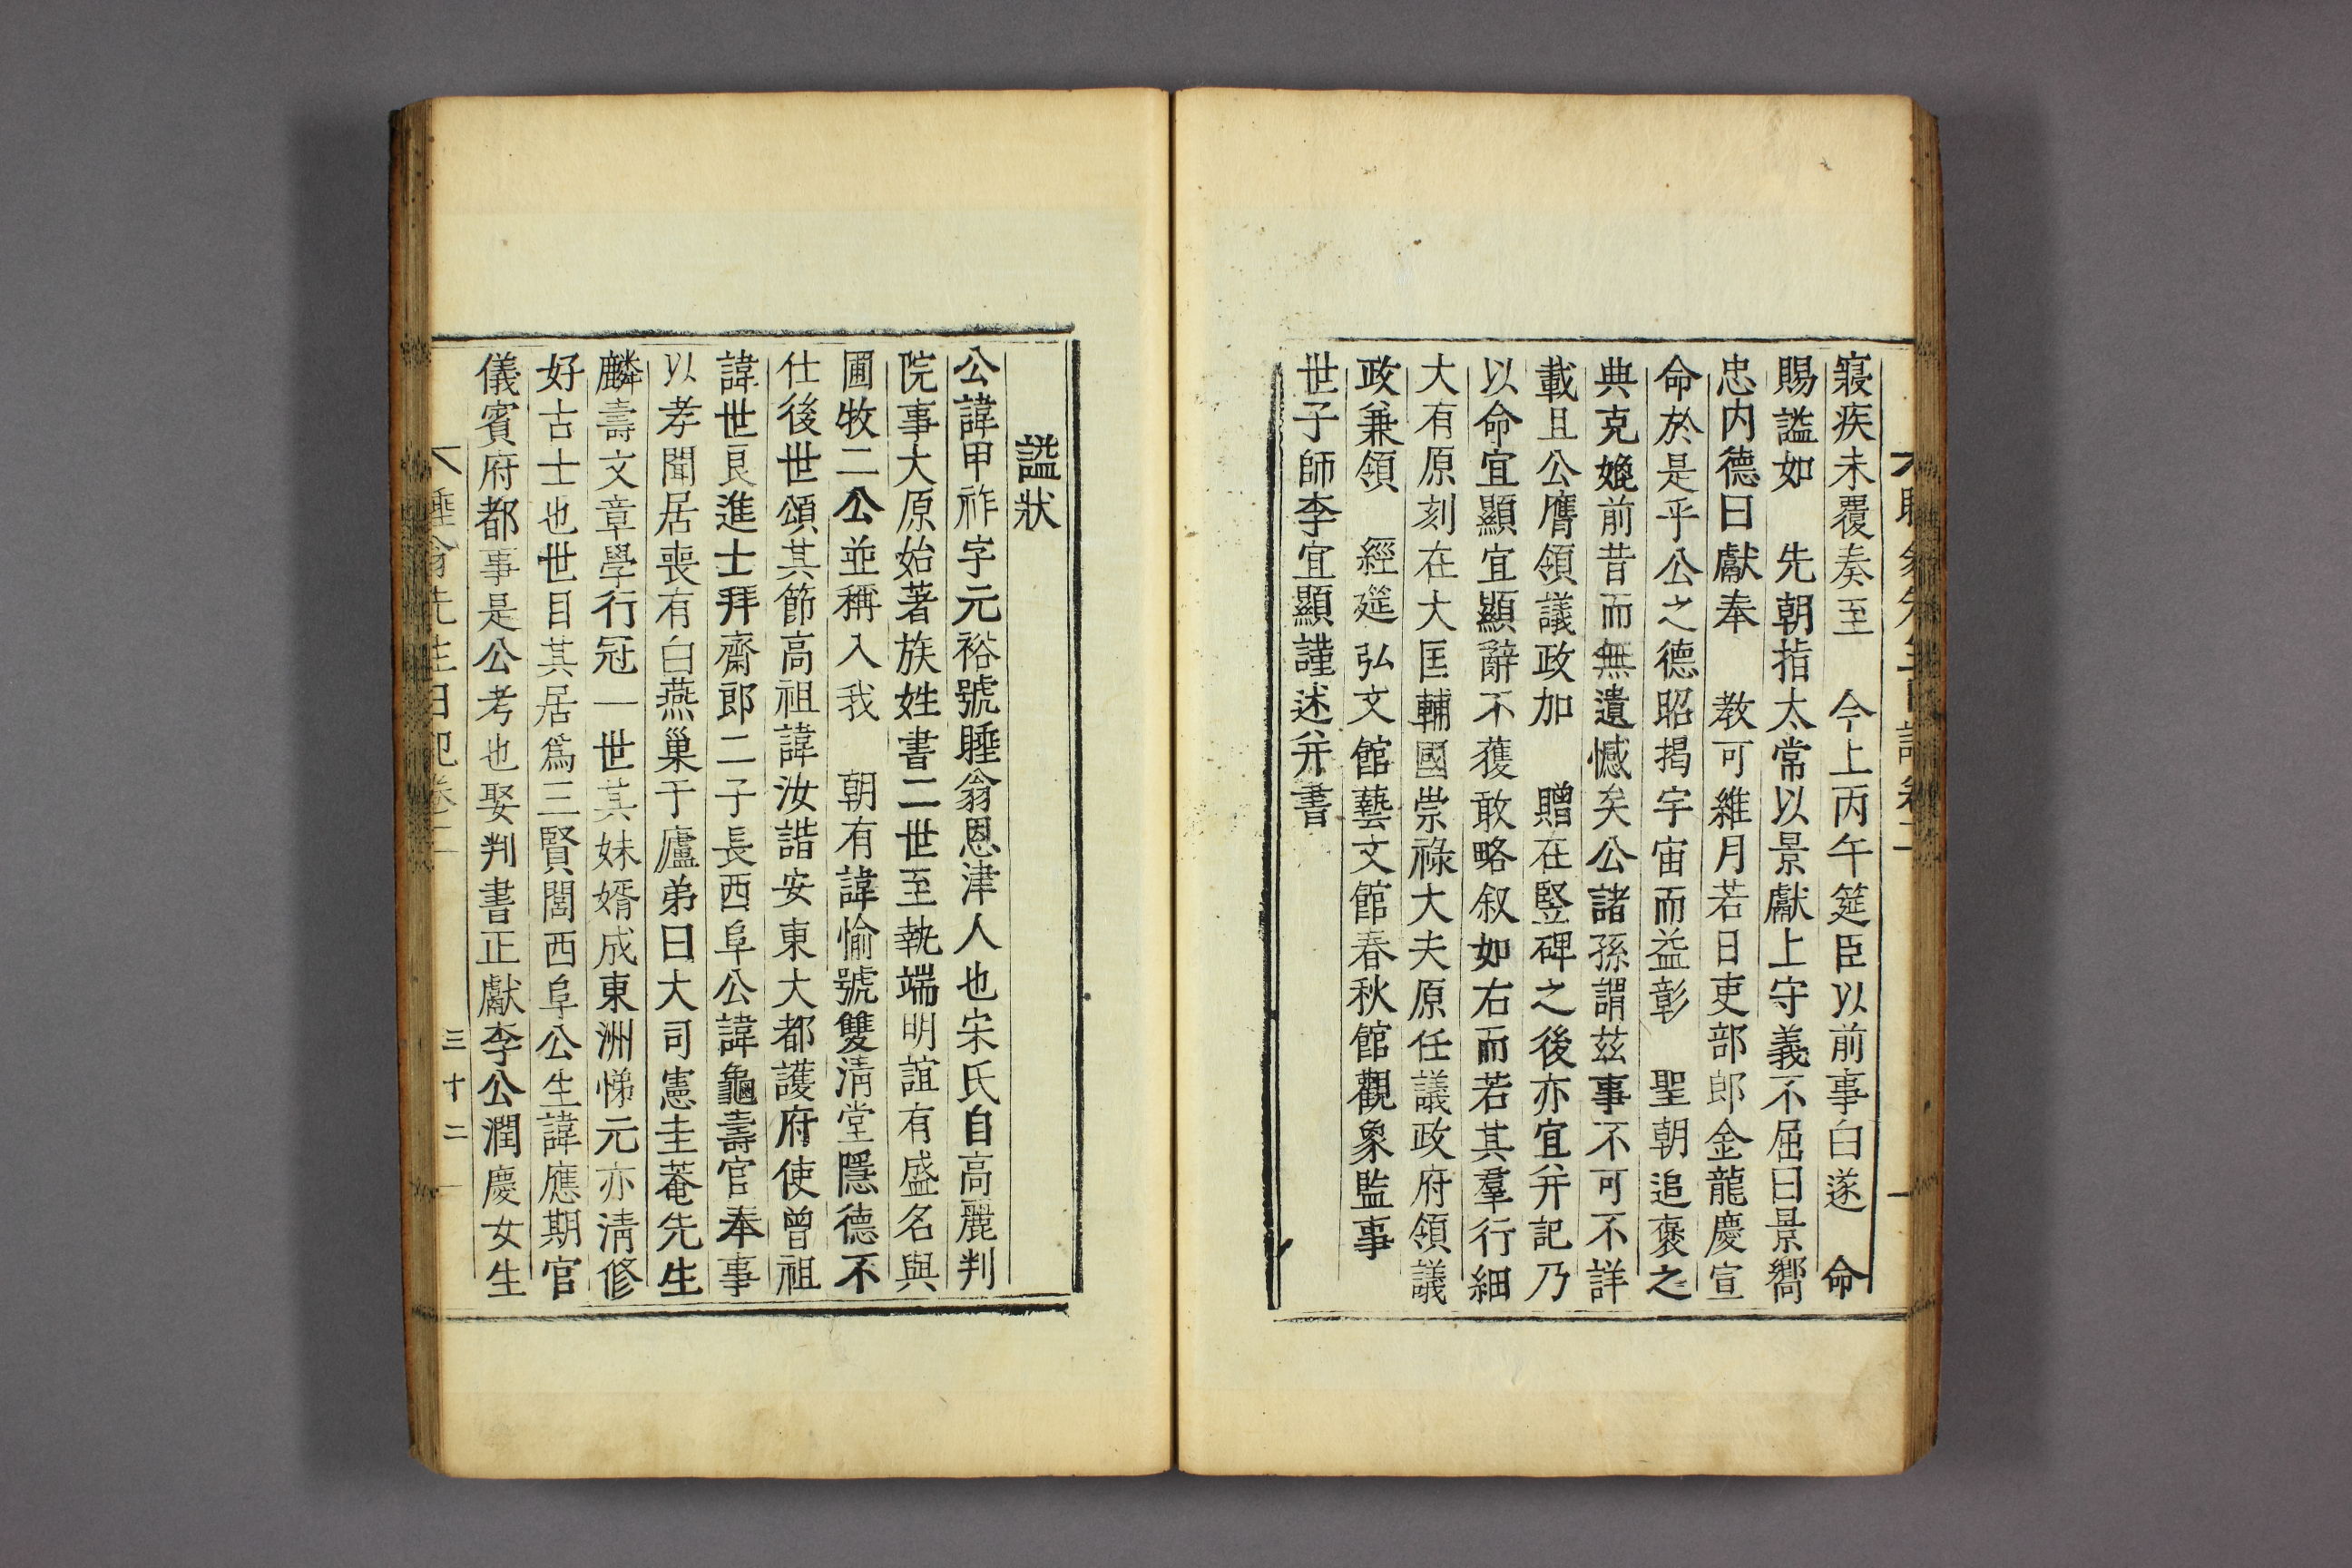 寢疾未覆奏至　今上丙午筵臣以前事白遂　命
賜謚如　先朝指太常以景獻上守義不屈曰景嚮
忠内德曰獻奉　教可維月若日吏部郎金龍慶宣
命於是乎公之德昭揭宇宙而益彰　聖朝追褒之
典克娩前昔而無遺憾矣公諸孫謂玆事不可不詳
載且公膺領議政加　贈在竪碑之後亦宜并記乃
以命宜顯宜顯辭不獲敢略叙如右而若其羣行細
大有原刻在大匡輔國崇祿大夫原任議政府領議
政兼領　經筵弘文館藝文館春秋館觀象監事
世子師李宜顯謹述并書
謚狀
公諱甲祚字元裕號睡翁恩津人也宋氏自高麗判
院事大原始著族姓書二世至執端明誼有盛名與
圃牧二公並稱入我　朝有諱愉號雙淸堂隱德不
仕後世頌其節高祖諱汝諧安東大都護府使曾祖
諱世良進士拜齋郎二子長西阜公諱龜壽官奉事
以孝聞居喪有白燕巢于廬弟曰大司憲圭菴先生
麟壽文章學行冠一世其妹婿成東洲悌元亦淸修
好古士也世目其居爲三賢閭西阜公生諱應期官
儀賓府都事是公考也娶判書正獻李公潤慶女生
睡翁先生日記卷二
三十二